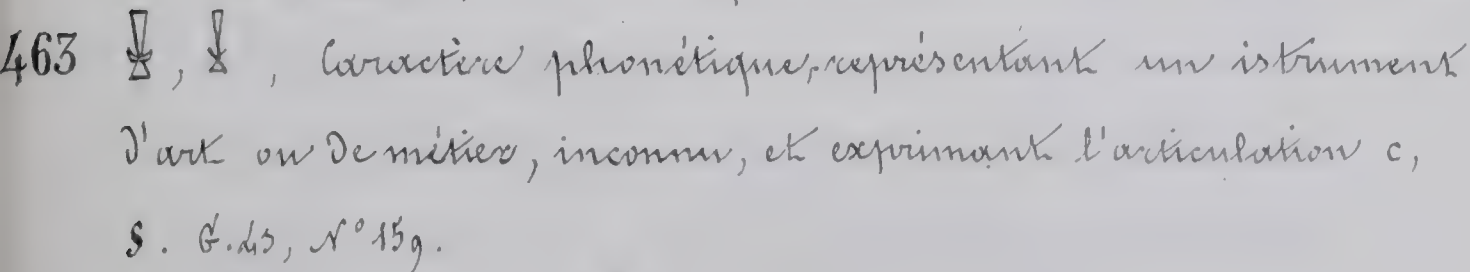 463 , , Caractère phonétique, représentant un istrument
d'art ou de métier, inconnu, et exprimant l'articulation c,
s. G. 43, N° 159.